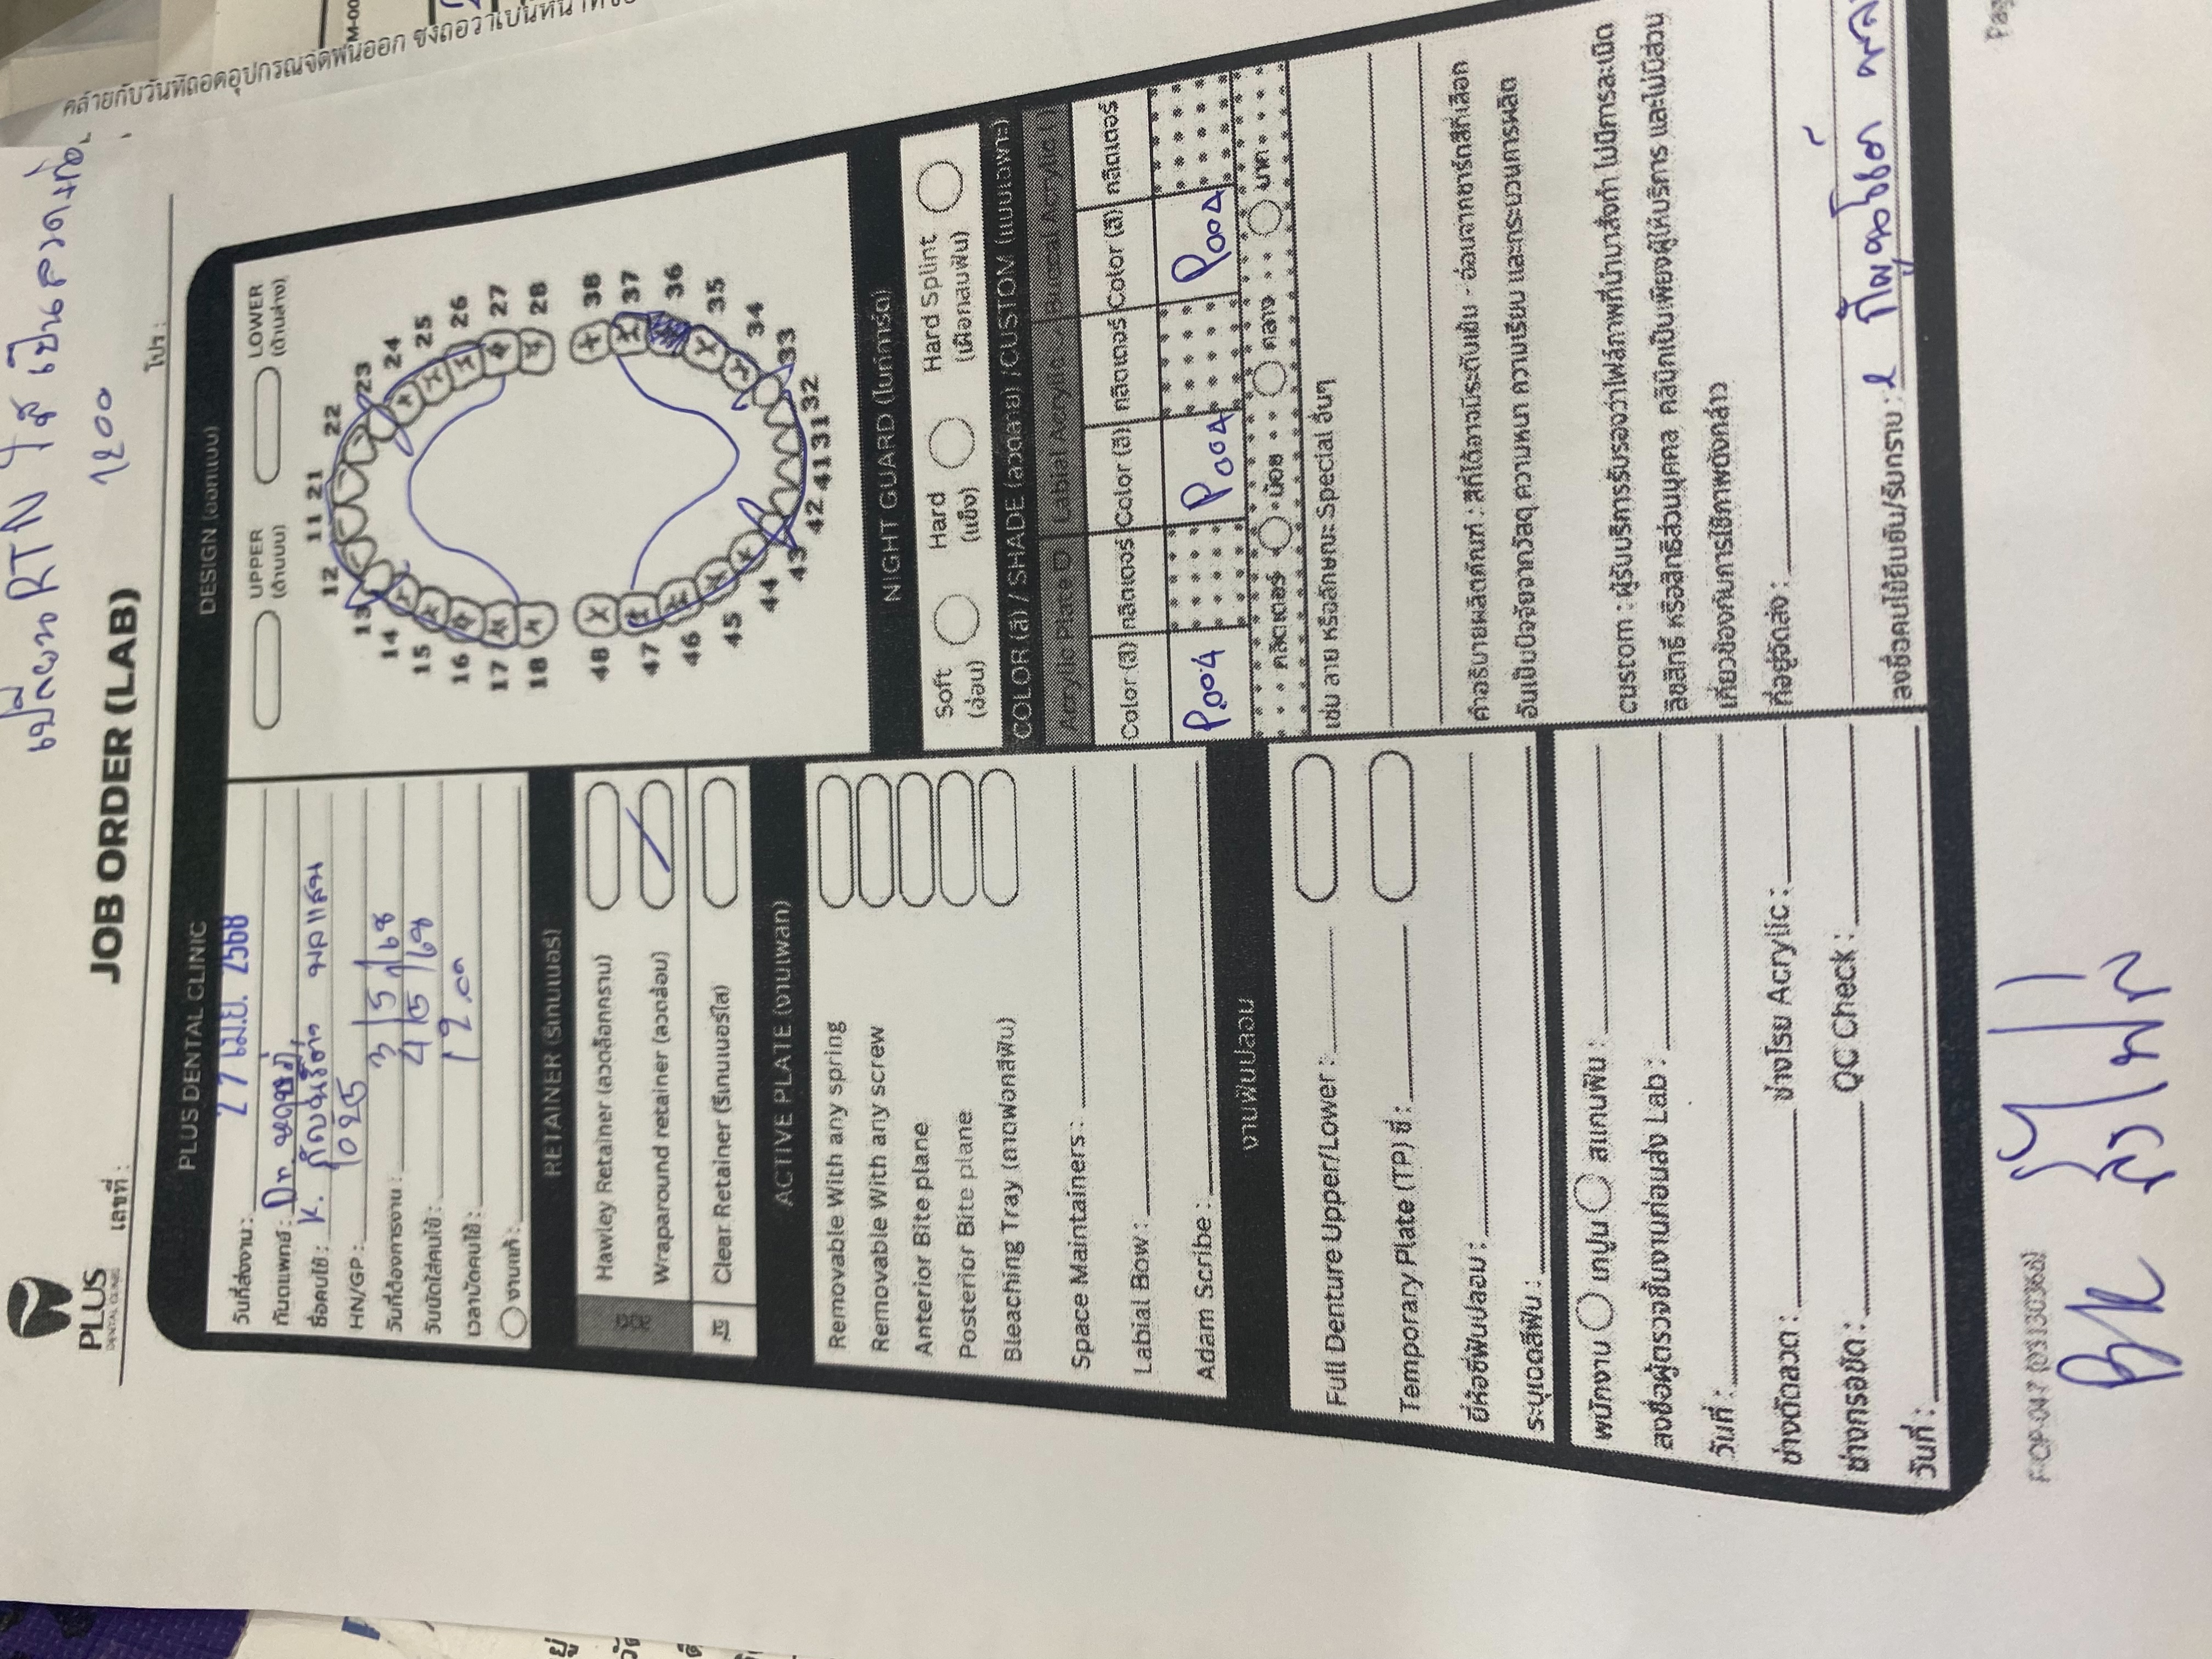 PLUS
DENTAL CLINIC
เลขที่ :
JOB ORDER (LAB)
เปลี่ยน RTN ใส เป็นลวด
1200
โปร :
PLUS DENTAL CLINIC
วันที่ส่งงาน : 27 เม.ย. 2568
ทันตแพทย์ : Dr.
ชื่อคนไข้ : K. พลแสน
HN/GP : 1025
วันที่ต้องการงาน : 3/5/68
วันนัดใส่คนไข้ : 4/5/68
เวลานัดคนไข้ : 12.00
งานแก้ :
RETAINER (รีเทนเนอร์)
ลวด
Hawley Retainer (ลวดล็อกกราม)
Wraparound retainer (ลวดล้อม)
ใส
Clear Retainer (รีเทนเนอร์ใส)
ACTIVE PLATE (งานเพลท)
Removable With any spring
Removable With any screw
Anterior Bite plane
Posterior Bite plane
Bleaching Tray (ถาดฟอกสีฟัน)
Space Maintainers :
Labial Bow :
Adam Scribe :
งานฟันปลอม
Full Denture Upper/Lower :
Temporary Plate (TP) ซี่ :
ยี่ห้อซี่ฟันปลอม :
ระบุเฉดสีฟัน :
พนักงาน เทปูน สแกนฟัน :
ลงชื่อผู้ตรวจชิ้นงานก่อนส่ง Lab :
วันที่ :
ช่างดัดลวด : ช่างโรย Acrylic :
ช่างกรอขัด : QC Check :
วันที่ :
DESIGN (ออกแบบ)
UPPER
(ด้านบน)
LOWER
(ด้านล่าง)
11 21
12 22
13 23
14 24
15 25
16 26
17 27
18 28
48 38
47 37
46 36
45 35
44 34
43 33
42 41 31 32
NIGHT GUARD (ไนท์การ์ด)
Soft
(อ่อน)
Hard
(แข็ง)
Hard Splint
(เฝือกสบฟัน)
COLOR (สี) / SHADE (ลวดลาย) /CUSTOM (แบบเฉพาะ)
Acrylic Plate Labial Acrylic Buccal Acrylic
Color (สี) กลิตเตอร์ Color (สี) กลิตเตอร์ Color (สี) กลิตเตอร์
P.004 P004 P004
กลิตเตอร์ น้อย กลาง มาก
เช่น ลาย หรือลักษณะ Special อื่นๆ
คำอธิบายผลิตภัณฑ์ : สีที่ได้อาจมีระดับเข้ม - อ่อนจากชาร์ทสีที่เลือก
อันเป็นปัจจัยจากวัสดุ ความหนา ความเรียบ และกระบวนการผลิต
custom : ผู้รับบริการรับรองว่าไฟล์ภาพที่นำมาสั่งทำ ไม่มีการละเมิด
ลิขสิทธิ์ หรือสิทธิส่วนบุคคล คลินิกเป็นเพียงผู้ให้บริการ และไม่มีส่วน
เกี่ยวข้องกับการใช้ภาพดังกล่าว
ที่อยู่จัดส่ง :
ลงชื่อคนไข้ยืนยัน/รับทราบ :
Pag
F-OP-047
BK ส่งไฟล์
M-00